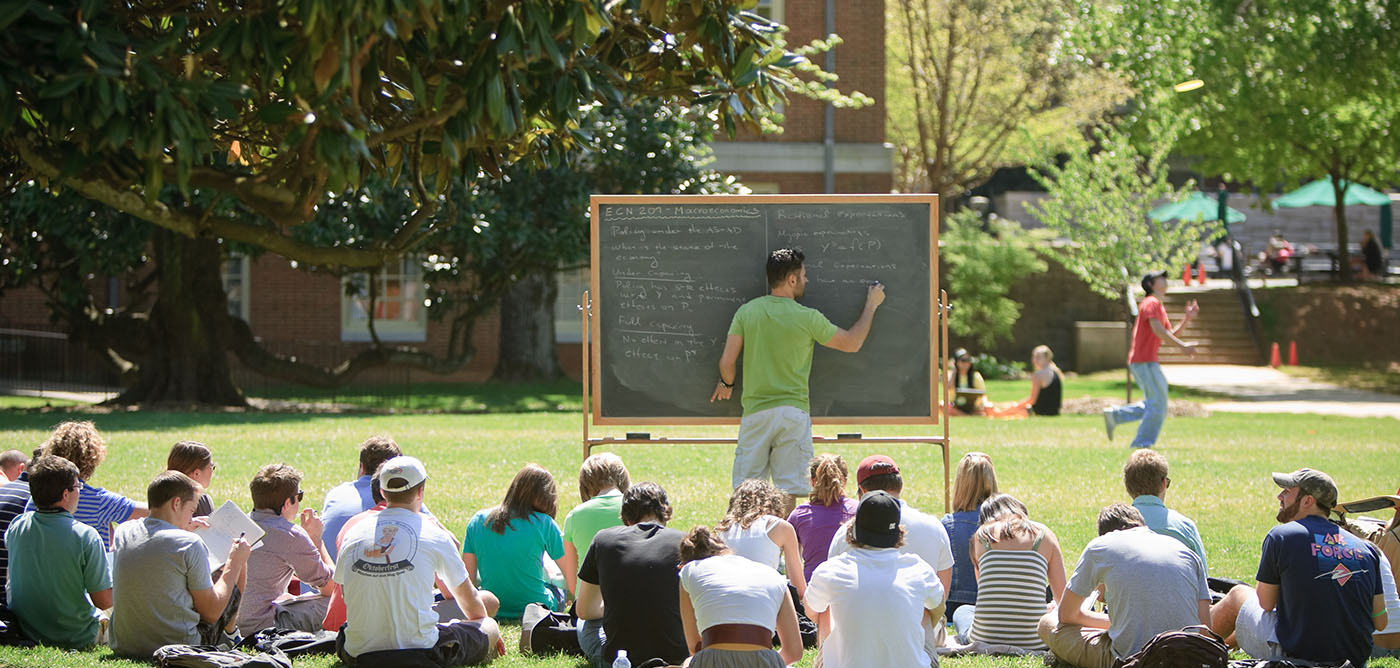 ECN 207 - Macroeconomics
Policy under the AS-AD
when is the state of the
economy
Under Capacity
Policy has SR effects
on Y and permanent
effects on P.
Full Capacity
No effect on the Y
effects on P
Rational Expectations
Myopic expectations
Expectations
have no
Oktoberfest
AIR
FORCE